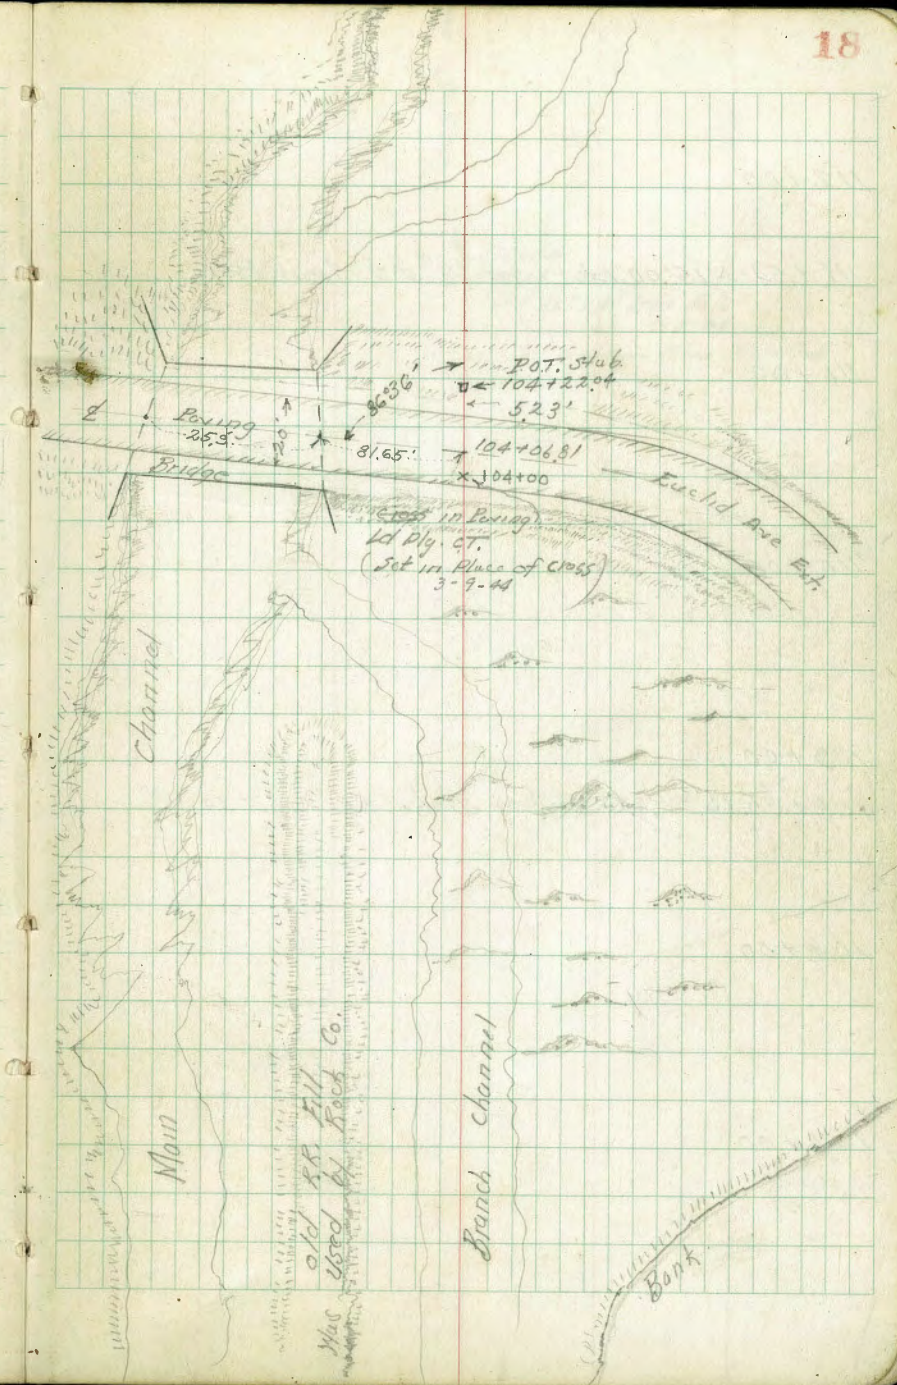 18
P.O.T. Stub.
104+22.04
5.23'
86°36'
℄ Paving
25.3'
20'
81.65'
104+06.81
104+00
Bridge
Euclid Ave Ext.
Cross in Paving
Ld Plg. CT.
(Set in Place of Cross)
3-9-44
Main Channel
old RR. Fill
Was Used by Rock Co.
Branch Channel
Bank